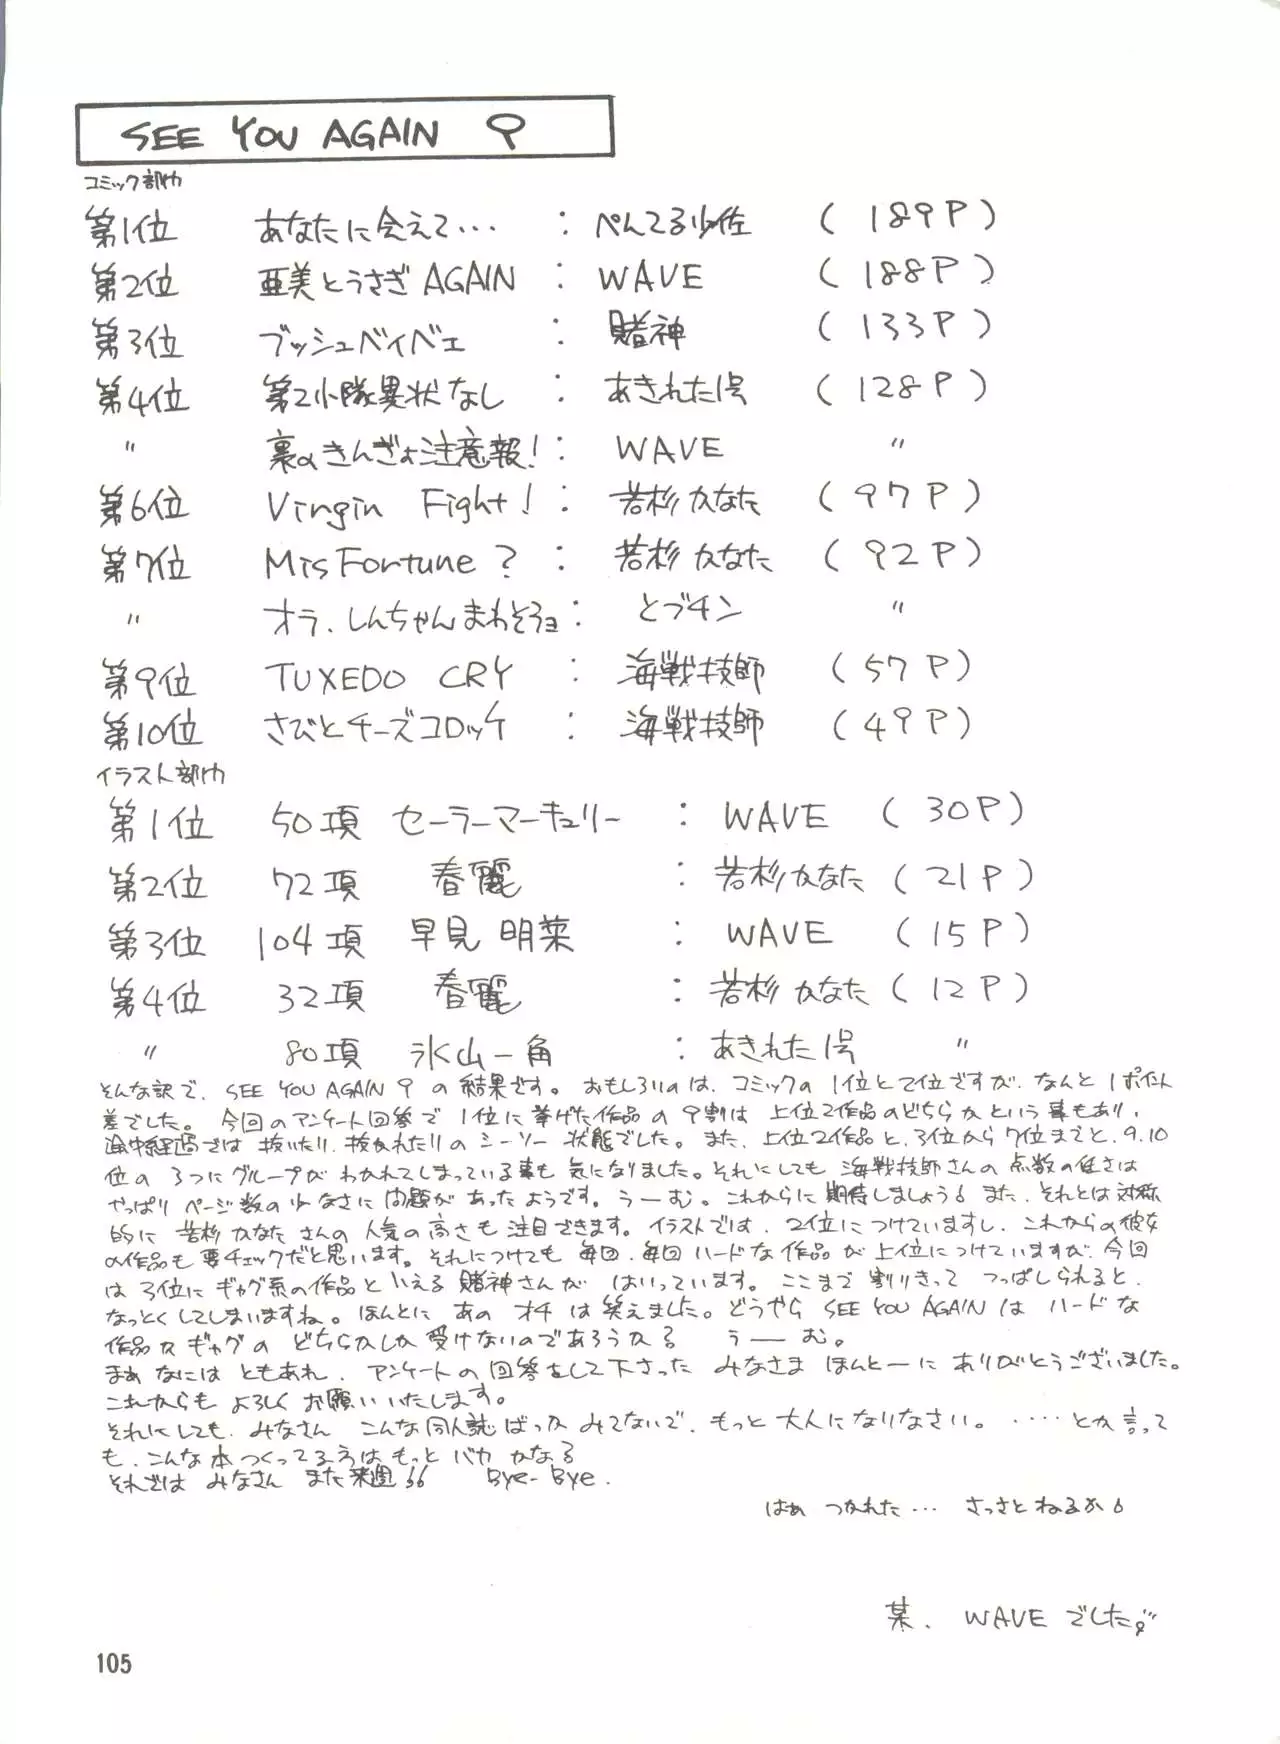 SEE YOU AGAIN 9
コミック部門
第1位 あなたに会えて… : ぺんてる少佐 (189P)
第2位 亜美とうさぎAGAIN : WAVE (188P)
第3位 ブッシュベイベェ : 賭神 (133P)
第4位 第2小隊異状なし : あきれた1号 (128P)
〃 裏のきんぎょ注意報! : WAVE 〃
第6位 Virgin Fight! : 若杉かなた (97P)
第7位 MisFortune? : 若杉かなた (92P)
〃 オラ、しんちゃんまわぞろョ : とブチン 〃
第9位 TUXEDO CRY : 海戦技師 (57P)
第10位 さびとチーズコロッケ : 海戦技師 (49P)
イラスト部門
第1位 50項 セーラーマーキュリー : WAVE (30P)
第2位 72項 春麗 : 若杉かなた (21P)
第3位 104項 早見 明菜 : WAVE (15P)
第4位 32項 春麗 : 若杉かなた (12P)
〃 80項 氷山一角 : あきれた1号 〃
そんな訳で、SEE YOU AGAIN 9 の結果です。おもしろいのは、コミックの1位と2位ですが、なんと1ポイント
差でした。今回のアンケート回答で1位に挙げた作品の9割は上位2作品のどちらかという事もあり、
途中経過では抜いたり、抜かれたりのシーソー状態でした。また、上位2作品と、3位から7位までと、9.10
位の3つにグループがわかれてしまっている事も気になりました。それにしても海戦技師さんの点数の低さは
やっぱりページ数の少なさに問題があったようです。うーむ。これからに期待しましょう。また、それとは対称
的に若杉かなたさんの人気の高さも注目できます。イラストでは、2位につけていますし、これからの彼女
の作品も要チェックだと思います。それにつけても毎回、毎回ハードな作品が上位につけていますが、今回
は3位にギャグ系の作品といえる賭神さんがはいっています。ここまで割りきってつっぱしられると、
なっとくしてしまいますね。ほんとにあのオチは笑えました。どうやらSEE YOU AGAINはハードな
作品かギャグのどちらかしか受けないのであろうかる うーむ。
まぁなにはともあれ、アンケートの回答をして下さったみなさまほんとーにありがとうございました。
これからもよろしくお願いいたします。
それにしても、みなさん こんな同人誌ばっかみてないで、もっと大人になりなさい。‥‥とか言って
も、こんな本つくってるうちはもっとバカかなる
それではみなさん また来週 Bye-Bye.
はぁ つかれた… さっさとねるか
某、WAVEでした。
105